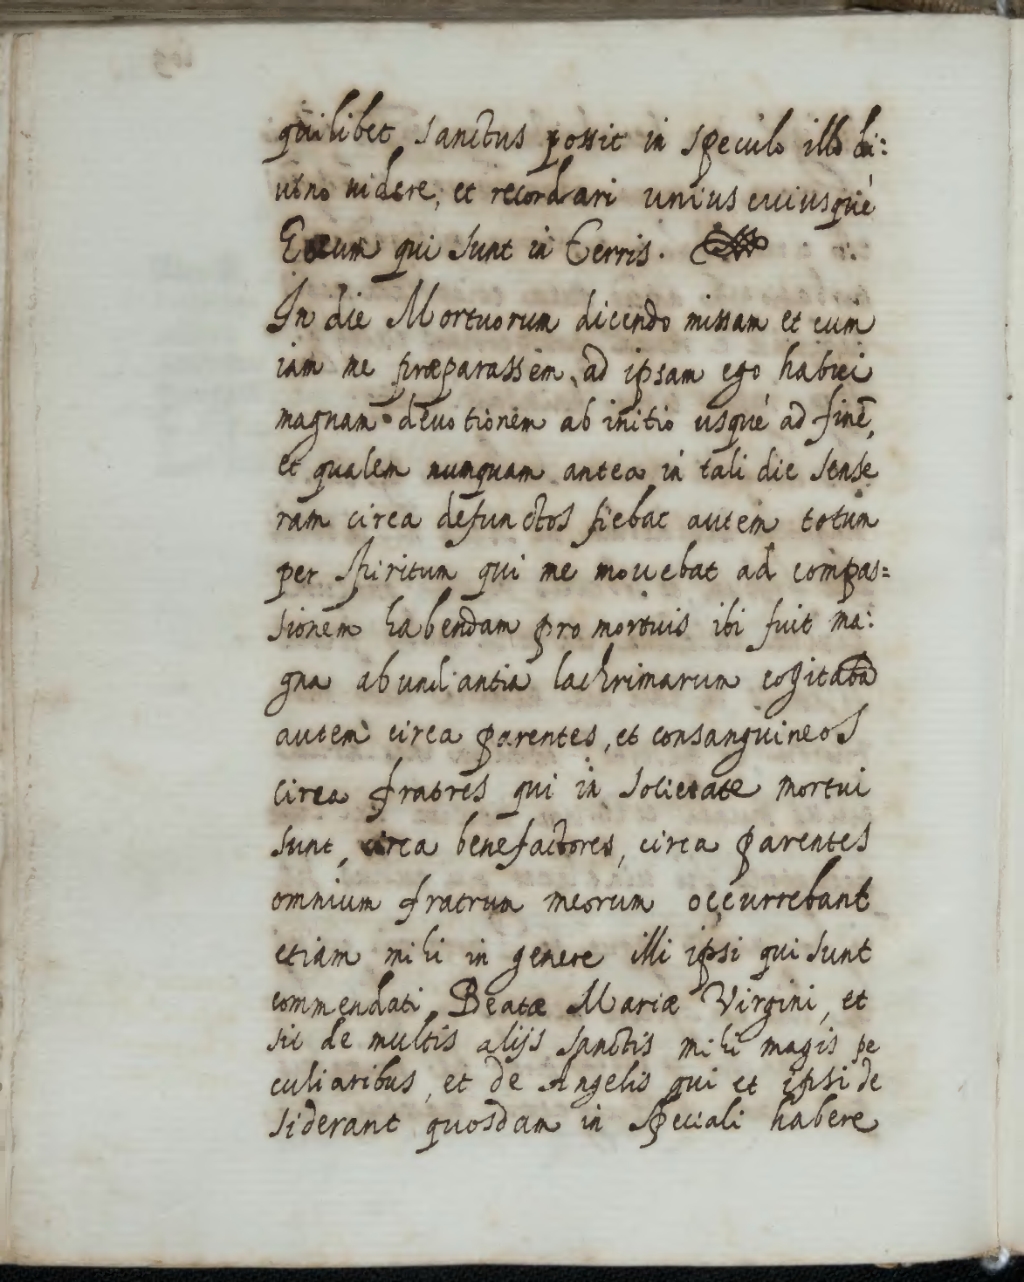 quilibet sanctus possit in speculo illo di:
uino uidere, et recordari unius cuiusqué
Eorum qui sunt in Terris.
In die Mortuorum dicendo missam et cum
iam me præparassem ad ipsam ego habui
magnam deuotionem ab initio usqué ad finē,
et qualem nunquam antea in tali die sense
ram circa defunctos fiebat autem totum
per spiritum qui me mouebat ad compas=
sionem habendam pro mortuis ibi fuit ma:
gna abundantia lachrimarum cogitaba
autem circa parentes, et consanguineos
circa fratres qui in societate mortui
sunt, circa benefactores, circa parentes
omnium fratrum meorum occurrebant
etiam mihi in genere illi ipsi qui sunt
commendati Beatæ Mariæ Virgini, et
sic de multis alijs sanctis mihi magis pe
culiaribus, et de Angelis qui et ipsi de
siderant quosdam in speciali habere